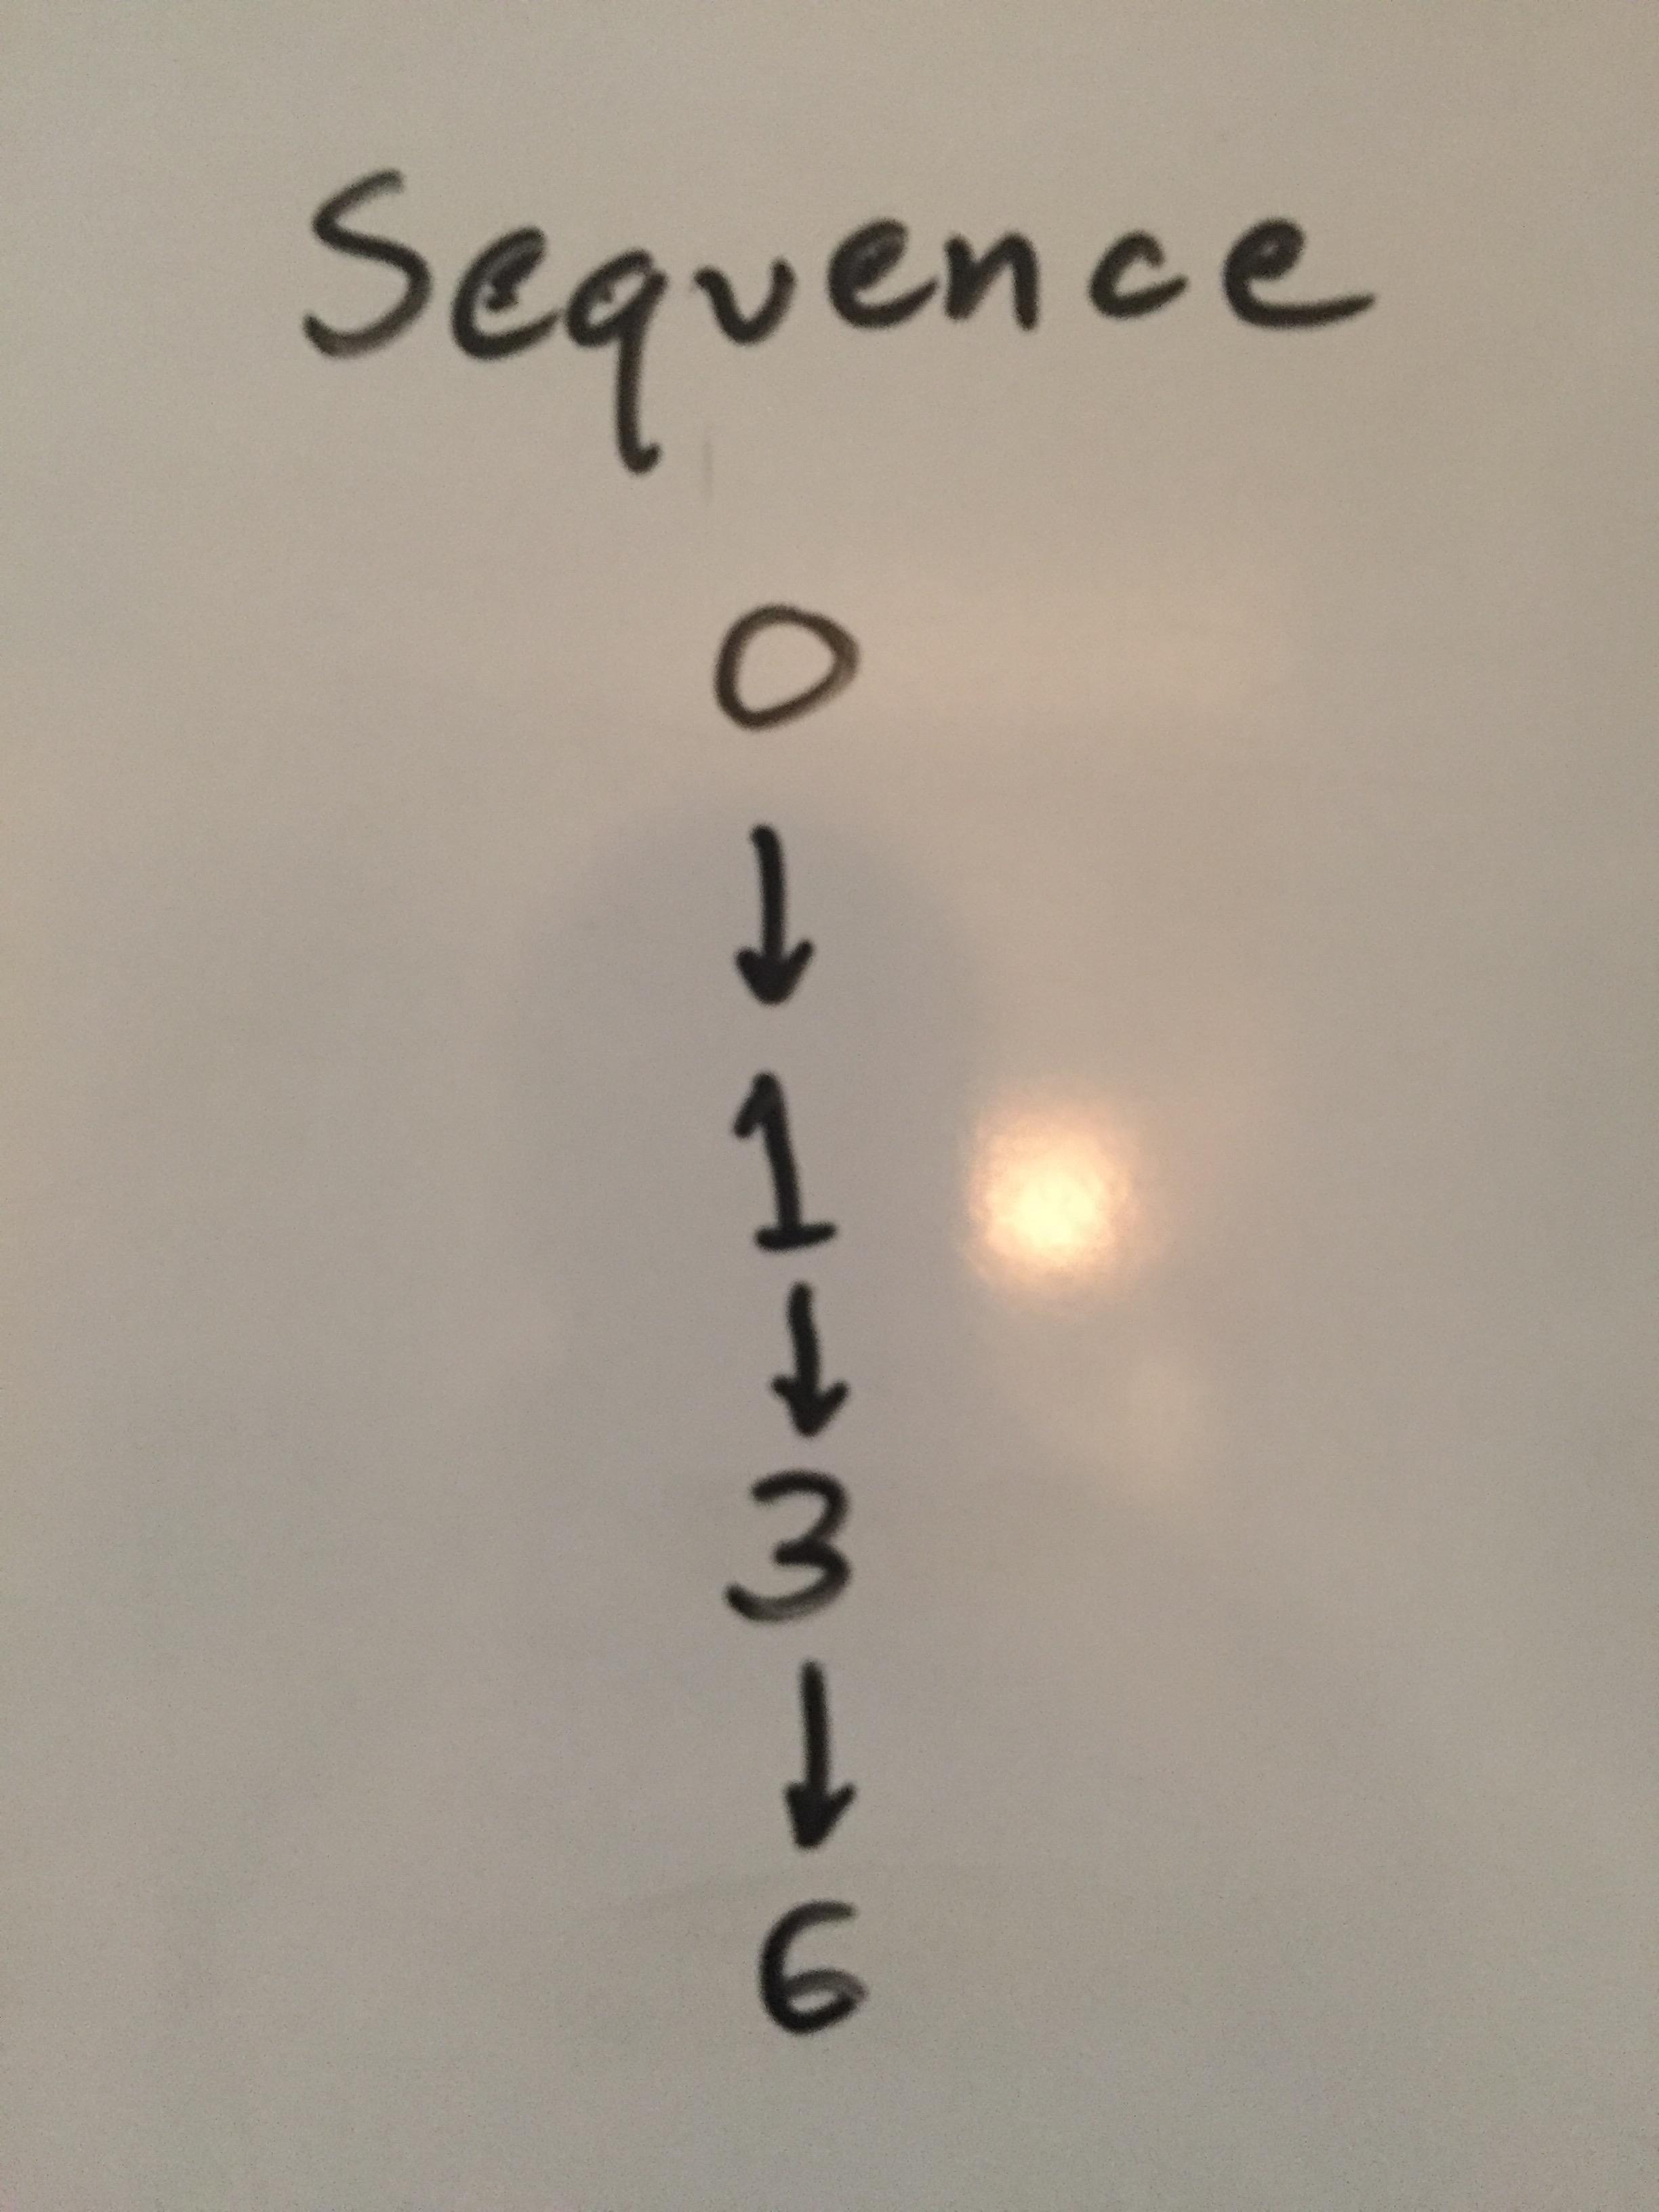 Sequence
0
↓
1
↓
3
↓
6